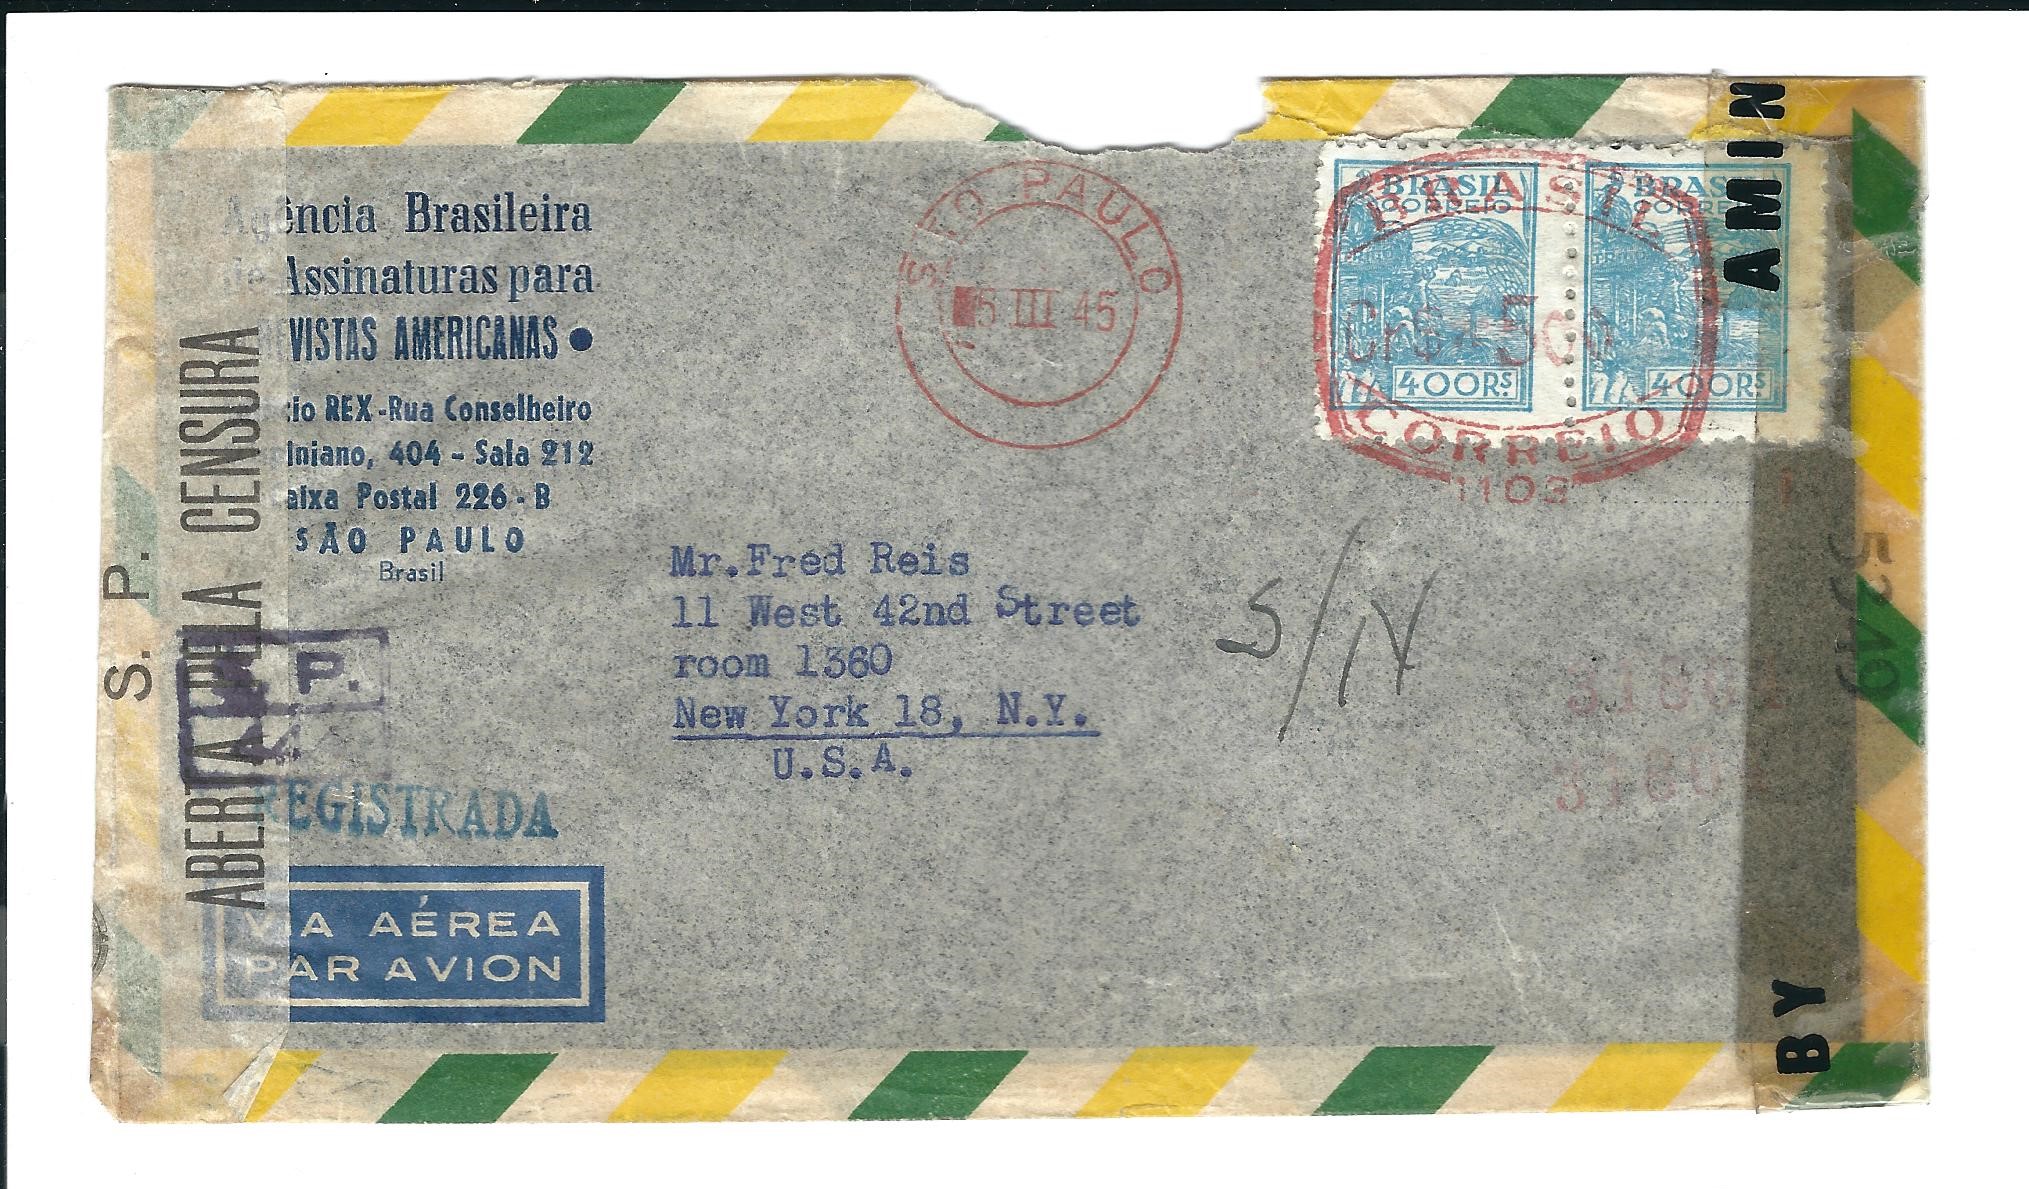 Agência Brasileira
de Assinaturas para
VISTAS AMERICANAS ●
io REX-Rua Conselheiro
iniano, 404 - Sala 212
aixa Postal 226 - B
SÃO PAULO
Brasil
S. P.
ABERTA PELA CENSURA
P.
REGISTRADA
VIA AÉREA
PAR AVION
SÃO PAULO
5 III 45
BRASIL
CORREIO
400 RS
BRASIL
CORREIO
400 RS
BRASIL
CORREIO
1103
Mr. Fred Reis
11 West 42nd Street
room 1360
New York 18, N.Y.
U.S.A.
S/N
31804
31804
AMIN
BY